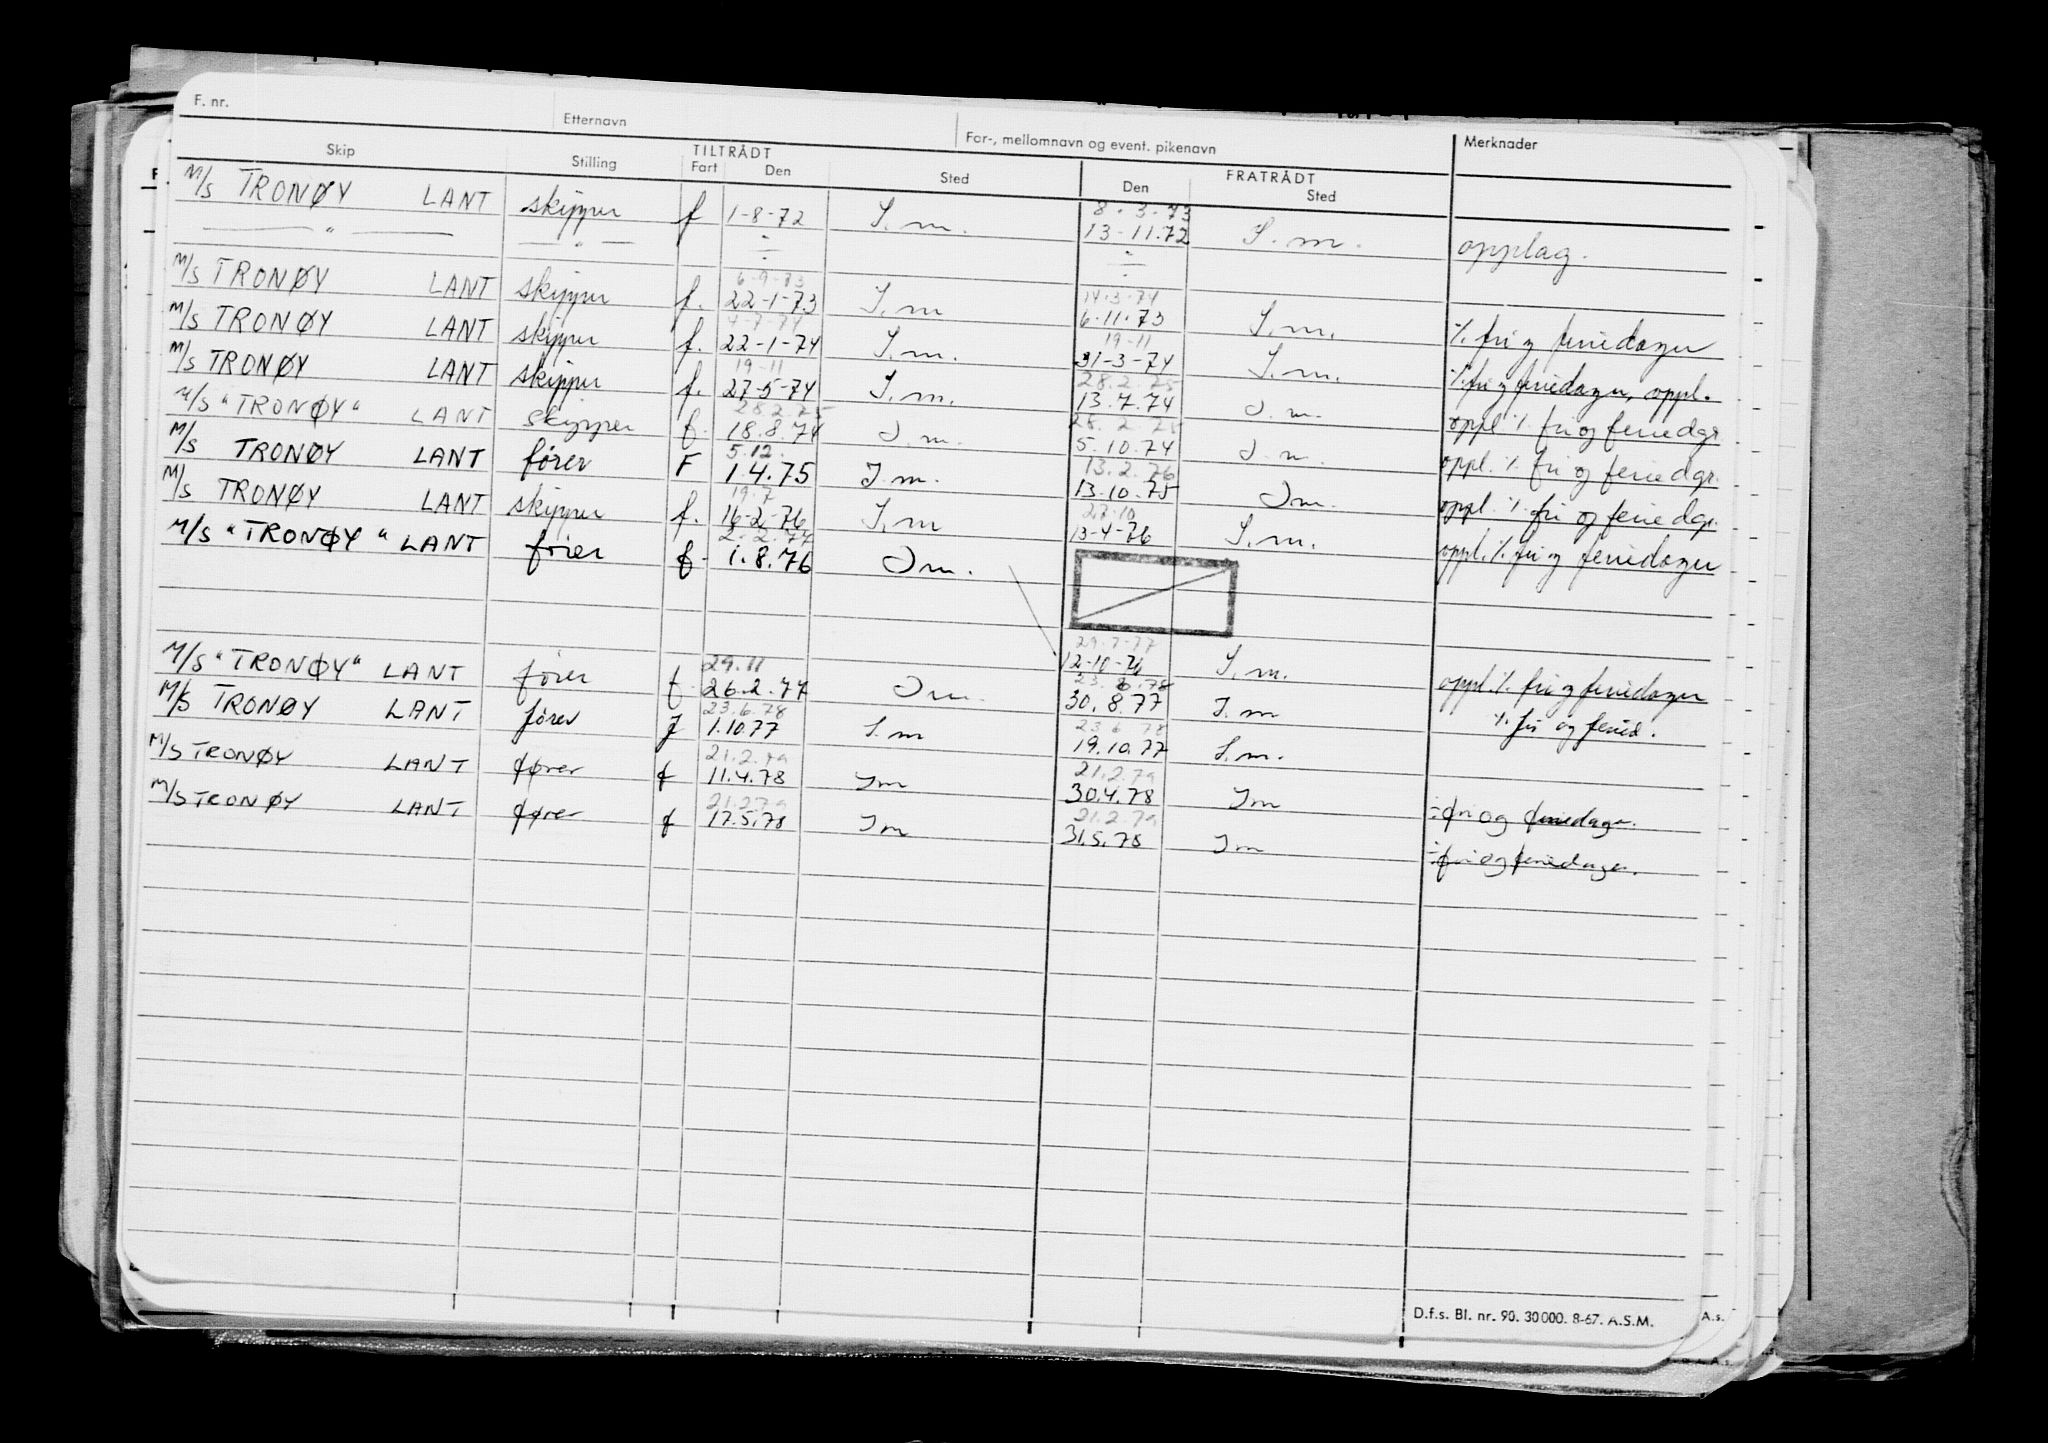 F. nr. Etternavn For-, mellomnavn og event. pikenavn Merknader
Skip Stilling TILTRÅDT Fart Den Sted FRATRÅDT Den Sted
8-3-73
M/S TRONØY LANT skipper f 1-8-72 S.m. 13-11.72 S.m. opplag.
— " — — " — ÷ ÷
6-9-73 14.3.74
M/S TRONØY LANT skipper f. 22-1-73 S.m 6-11.73 S.m. % fri og feriedager
4-7-74 19-11
M/S TRONØY LANT skipper f. 22-1-74 S.m. 31-3-74 S.m. % fri og feriedager, oppl.
19-11 28.2.75
M/S TRONØY LANT skipper f. 27-5-74 S.m. 13.7.74 S.m. oppl % fri og feriedgr.
28.2.75 28.2.75
M/S "TRONØY" LANT skipper f. 18.8.74 S.m. 5.10.74 S.m. oppl. % fri og feriedgr.
5.12. 13.2.76
M/S TRONØY LANT fører F 1.4.75 S.m. 13.10.75 Sm. oppl % fri og feriedgr.
19.7 27.10
M/S TRONØY LANT skipper f. 16-2-76 S.m 13-4-76 S.m. oppl. % fri og feriedager
2.2.77
M/S "TRONØY" LANT fører f. 1.8.76 Sm. 12-10-76 S.m. oppl. % fri og feriedager
29.11 29.7-77 23.6.78
M/S "TRONØY" LANT fører f 26.2.77 Sm. 30.8.77 S.m % fri og feried.
23.6.78 23.6.78
M/S TRONØY LANT fører f 1.10.77 S.m 19.10.77 S.m.
21.2.79 21.2.79
M/S TRONØY LANT fører f 11.4.78 Sm 30.4.78 Sm ÷ fri og feriedager.
21.2.79 21.2.79
M/S TRONØY LANT fører f 17.5.78 Sm 31.5.78 Sm ÷ fri og feriedager.
D.f.s. Bl. nr. 90. 30 000. 8-67. A.S.M.
A.s.